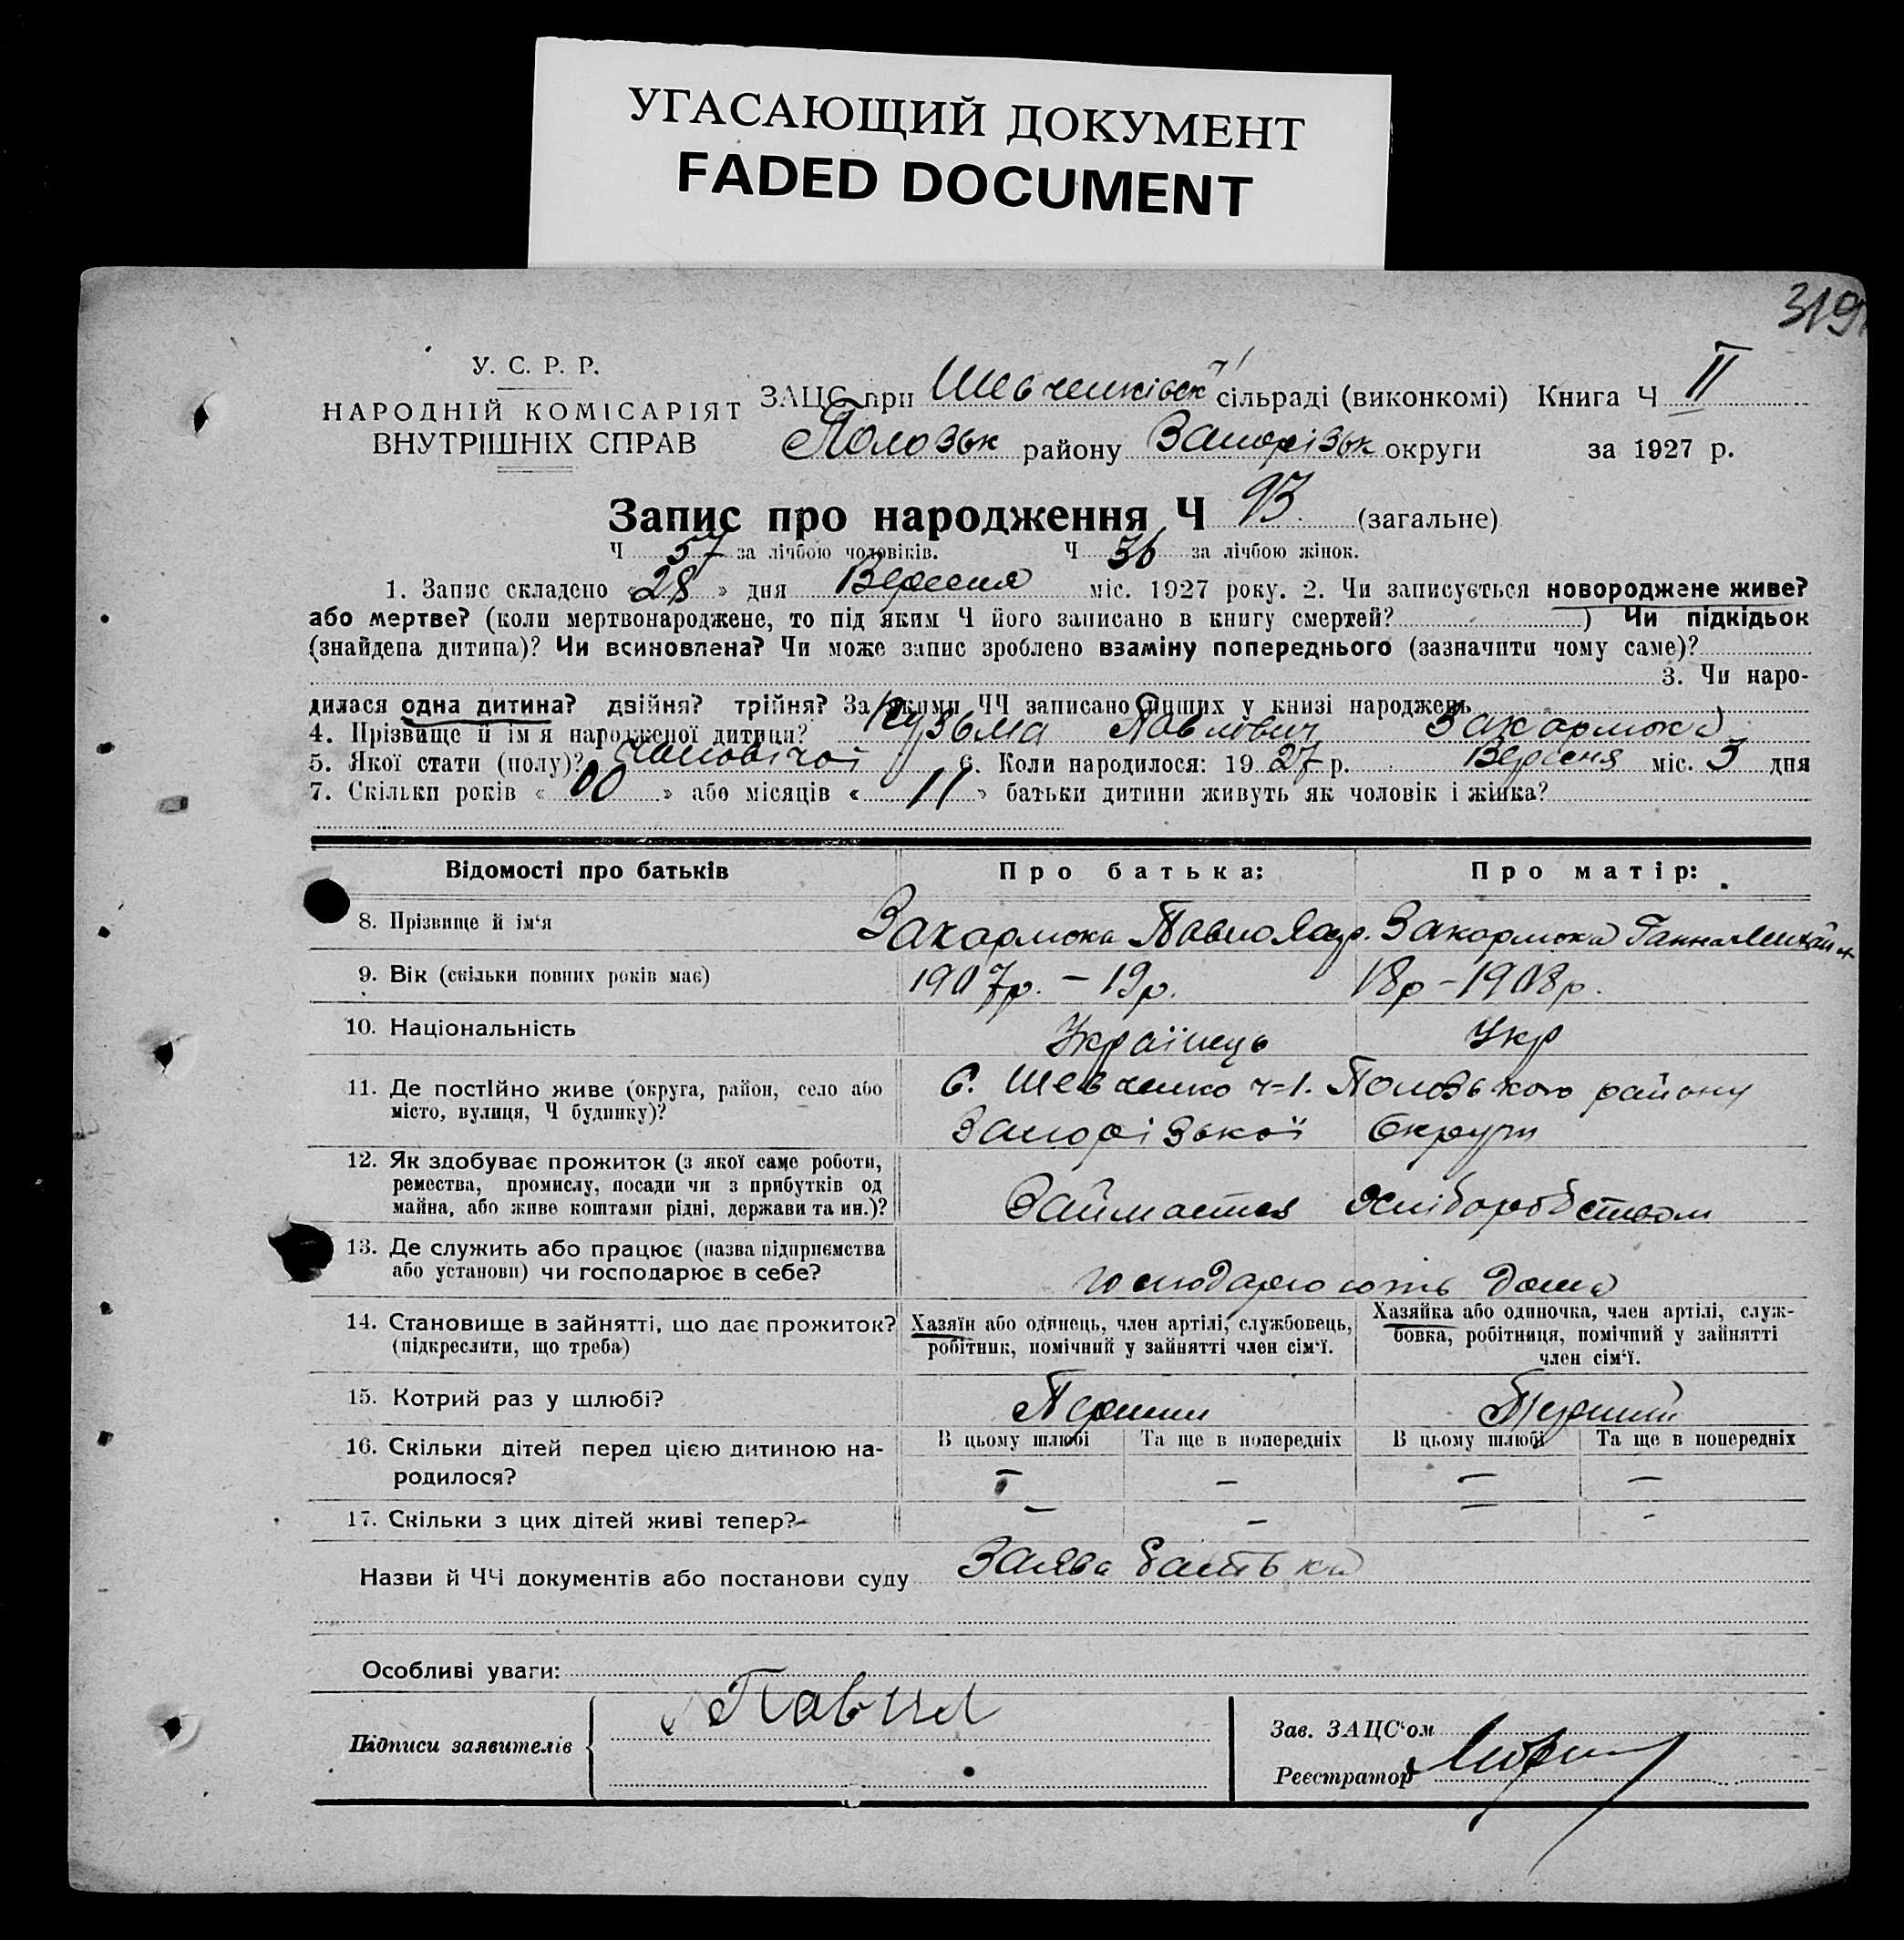 УГАСАЮЩИЙ ДОКУМЕНТ
FADED DOCUMENT
319
У. С. Р. Р.
НАРОДНІЙ КОМІСАРІЯТ
ВНУТРІШНІХ СПРАВ
ЗАЦС при Шевченківськ ч1 сільраді (виконкомі) Книга Ч II
Пологзьк району Запорізьк округи за 1927 р.
Запис про народження Ч 93 (загальне)
Ч 57 за лічбою чоловіків. Ч 36 за лічбою жінок.
1. Запис складено «28» дня Вересня міс. 1927 року. 2. Чи записується новороджене живе?
або мертве? (коли мертвонароджене, то під яким Ч його записано в книгу смертей? ) Чи підкідьок
(знайдена дитина)? Чи всиновлена? Чи може запис зроблено взаміну попереднього (зазначити чому саме)?
3. Чи наро-
дилася одна дитина? двійня? трійня? За якими ЧЧ записано инших у книзі народжень
4. Прізвище й ім'я народженої дитини? Кузьма Павлович
5. Якої стати (полу)? Чоловічої 6. Коли народилося: 1927 р. Вересня міс. 3 дня
7. Скільки років «00» або місяців «11» батьки дитини живуть як чоловік і жінка?
Відомості про батьків Про батька: Про матір:
8. Прізвище й ім'я Павло Ганна
9. Вік (скільки повних років має) 1907р. – 19р. 18р – 1908р.
10. Національність Українець Укр
11. Де постійно живе (округа, район, село або С. Шевченко ч-1. Полозького району
місто, вулиця, Ч будинку)? Запорізької Округи
12. Як здобуває прожиток (з якої саме роботи,
ремества, промислу, посади чи з прибутків од
майна, або живе коштами рідні, держави та ин.)? Займаются хліборобством
13. Де служить або працює (назва підприємства
або установи) чи господарює в себе? господарюють дома
14. Становище в зайнятті, що дає прожиток? (підкреслити, що треба)
Хазяїн або одинець, член артілі, службовець, робітник, помічний у зайнятті член сім'ї.
Хазяйка або одиночка, член артілі, служ-
бовка, робітниця, помічний у зайнятті
член сім'ї.
15. Котрий раз у шлюбі? Перший Перший
16. Скільки дітей перед цією дитиною на-
родилося?
В цьому шлюбі Та ще в попередніх В цьому шлюбі Та ще в попередніх
– – –
17. Скільки з цих дітей живі тепер? – – – -
Назви й ЧЧ документів або постанови суду Заява батька
Особливі уваги:
Підписи заявителів
Зав. ЗАЦС'ом
Реєстратор